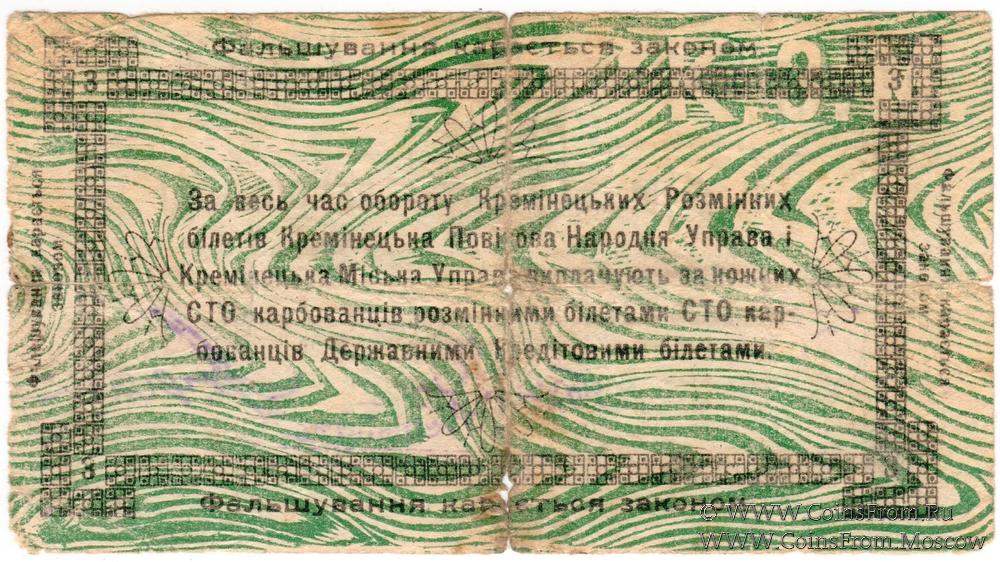 Фальшування карається законом
К.О.
3 3
За весь час оборату Кремінецьких Розмінних
білетів Кремінецька Повітова Народня Управа і
Кремінецька Міська Управа виплачують за кожних
СТО карбованців розмінними білетами СТО кар-
бованців Державними Кредітовими білетами.
Фальшування карається
законом
Фальшування карається
законом
3 3
Фальшування карається законом
© www.CoinsFrom.Ru
WWW.CoinsFrom.Moscow